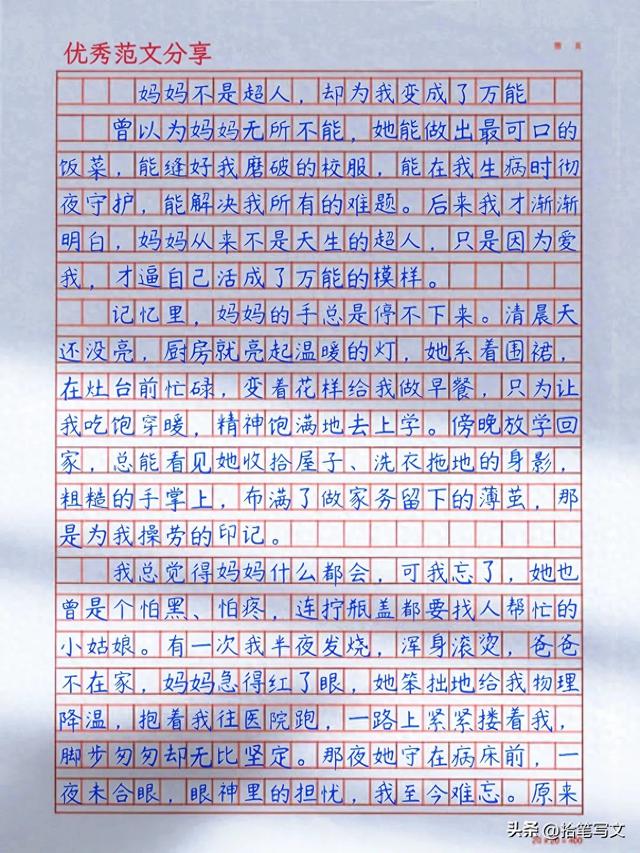 优秀范文分享
妈妈不是超人，却为我变成了万能
曾以为妈妈无所不能，她能做出最可口的
饭菜，能缝好我磨破的校服，能在我生病时彻
夜守护，能解决我所有的难题。后来我才渐渐
明白，妈妈从来不是天生的超人，只是因为爱
我，才逼自己活成了万能的模样。
记忆里，妈妈的手总是停不下来。清晨天
还没亮，厨房就亮起温暖的灯，她系着围裙，
在灶台前忙碌，变着花样给我做早餐，只为让
我吃饱穿暖，精神饱满地去上学。傍晚放学回
家，总能看见她收拾屋子、洗衣拖地的身影，
粗糙的手掌上，布满了做家务留下的薄茧，那
是为我操劳的印记。
我总觉得妈妈什么都会，可我忘了，她也
曾是个怕黑、怕疼，连拧瓶盖都要找人帮忙的
小姑娘。有一次我半夜发烧，浑身滚烫，爸爸
不在家，妈妈急得红了眼，她笨拙地给我物理
降温，抱着我往医院跑，一路上紧紧搂着我，
脚步匆匆却无比坚定。那夜她守在病床前，一
夜未合眼，眼神里的担忧，我至今难忘。原来
20×20=400
头条 @拾笔写文